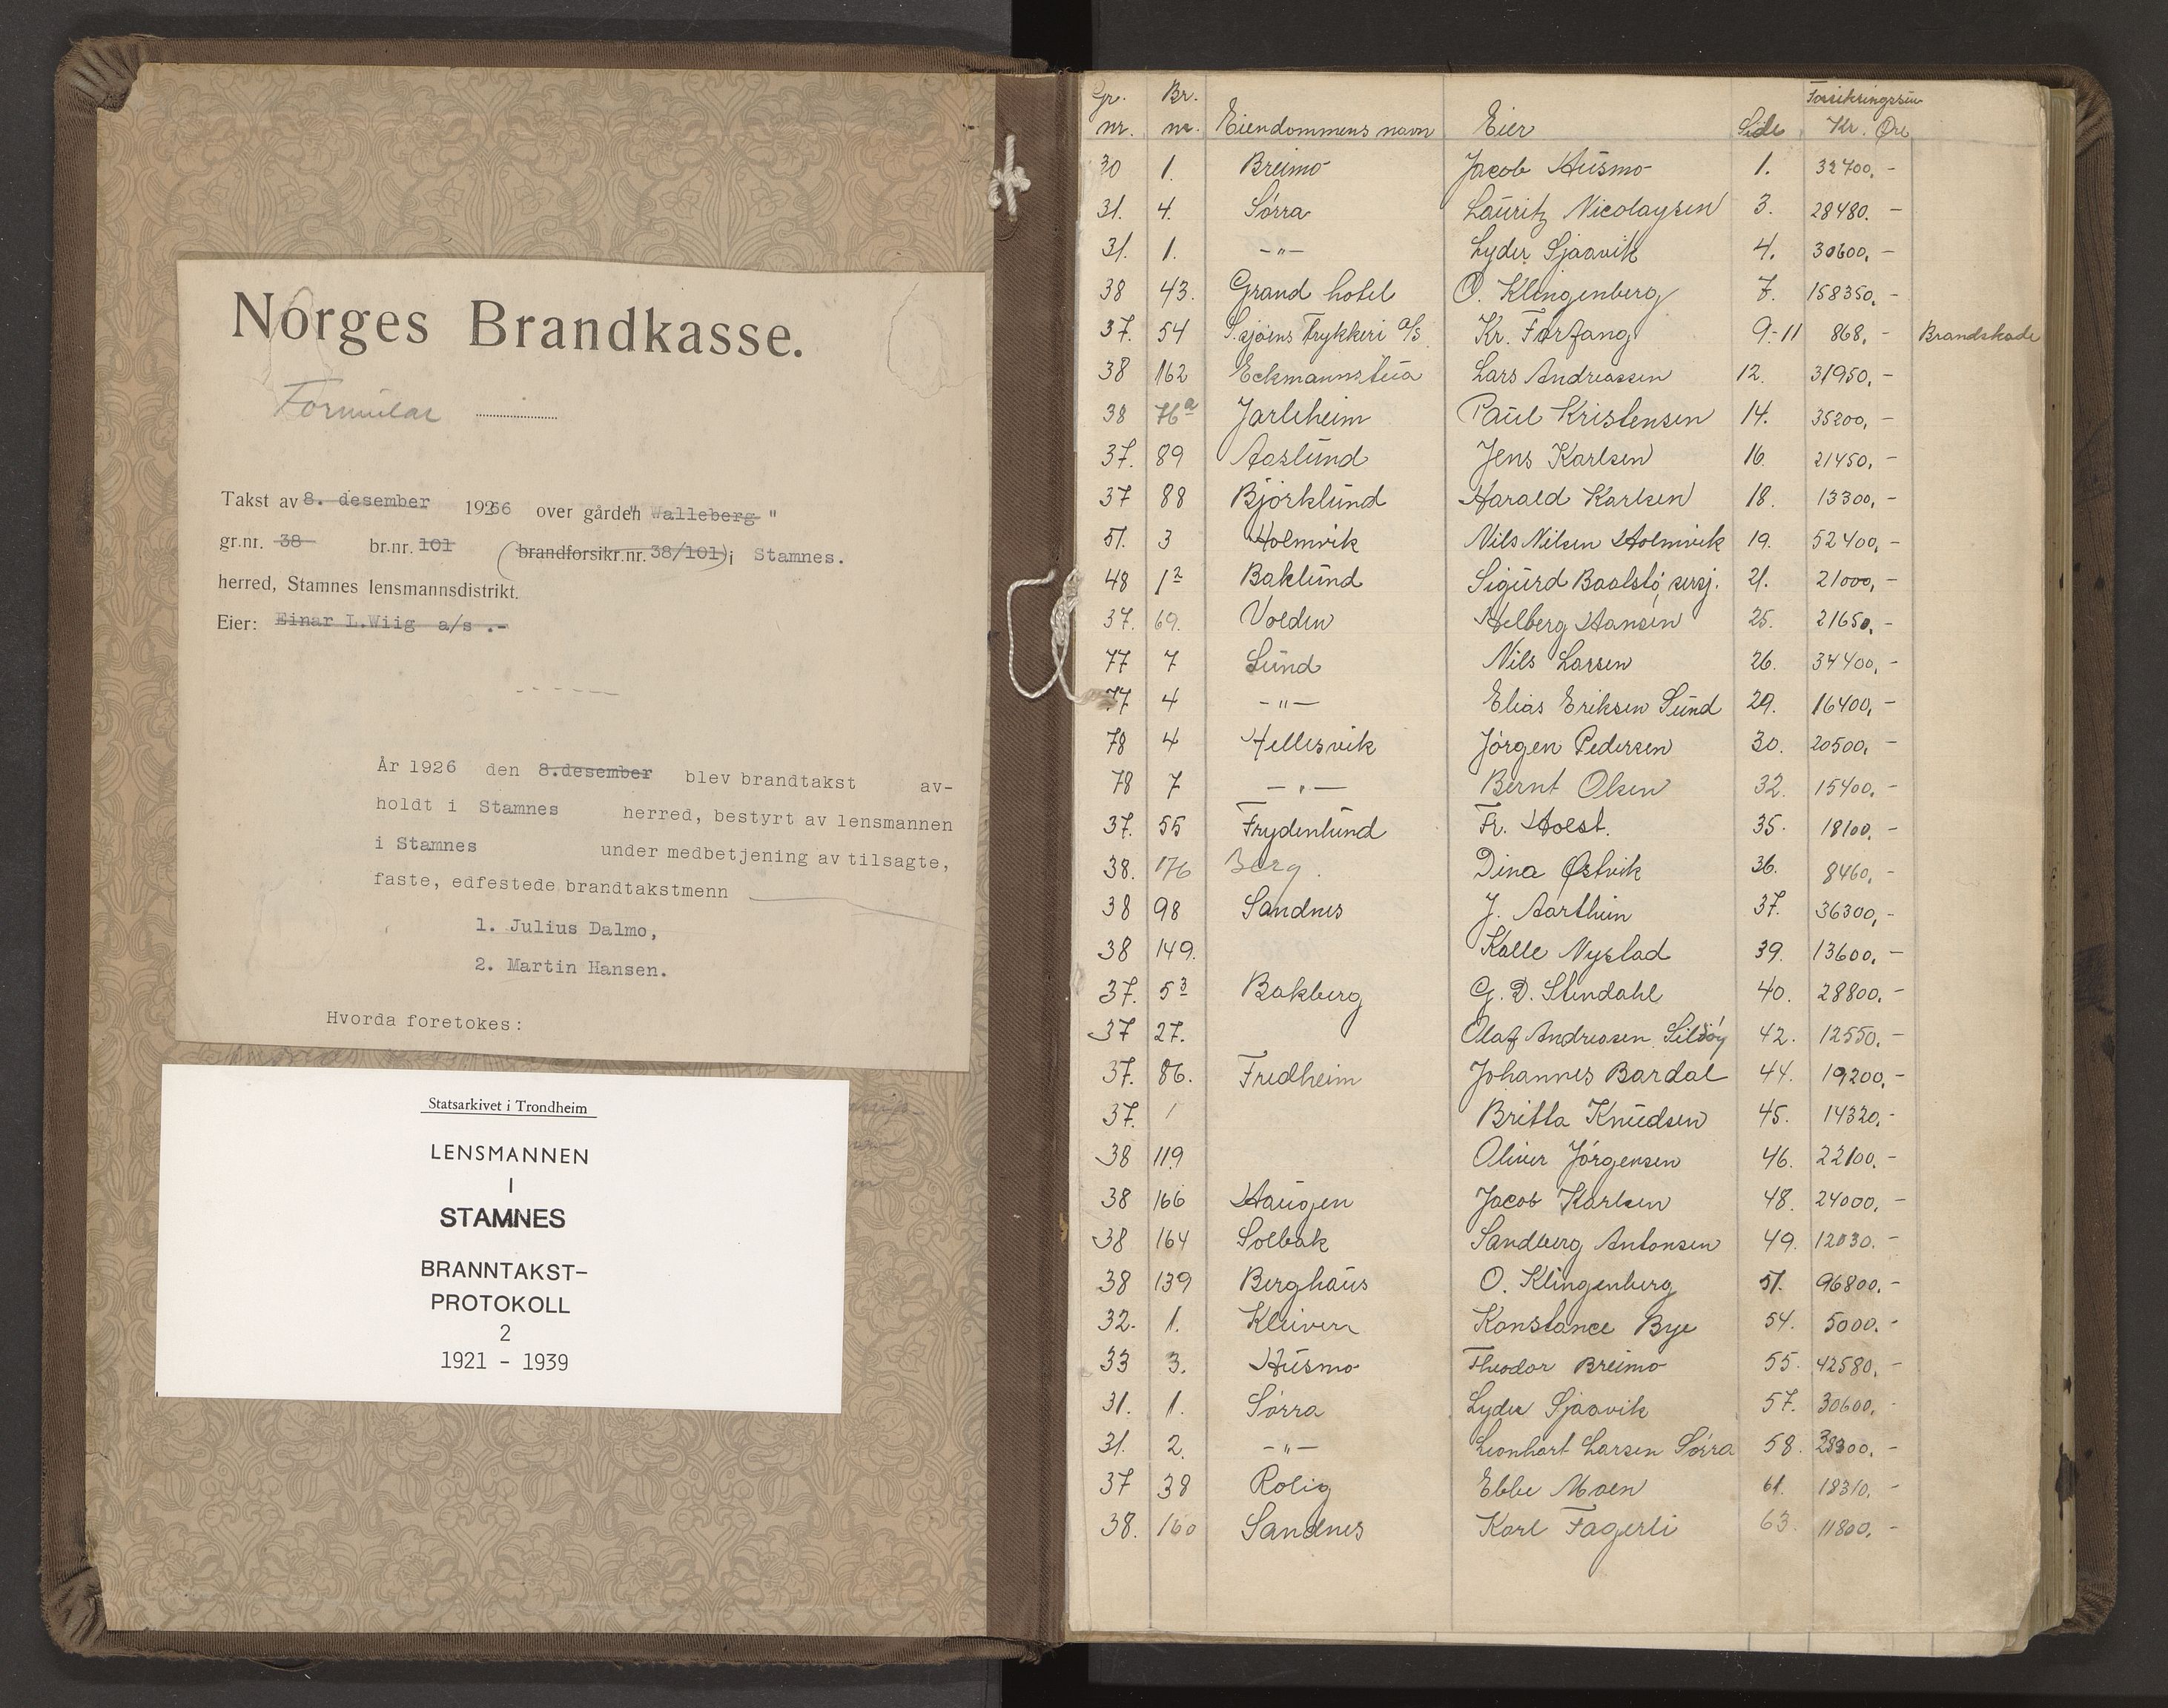 Norges Brandkasse.
Formular
Takst av 8. desember 19266 over gården " Walleberg "
gr.nr. 38 br.nr. 101 (brandforsikr.nr. 38/101) i Stamnes.
herred, Stamnes lensmannsdistrikt.
Eier: Einar L.Wiig a/s .-
År 1926 den 8.desember blev brandtakst av-
holdt i Stamnes herred, bestyrt av lensmannen
i Stamnes under medbetjening av tilsagte,
faste, edfestede brandtakstmenn
1. Julius Dalmo,
2. Martin Hansen.
Hvorda foretokes:
Statsarkivet i Trondheim
LENSMANNEN
I
STAMNES
BRANNTAKST-
PROTOKOLL
2
1921 - 1939
Gr. nr. Br. nr. Eiendommens navn Eier Side Forsikringssum Kr. Øre
30 1. Breimo Jacob Husmo 1. 32700,-
31. 4. Sörra Lauritz Nicolaysen 3. 28480.-
31. 1. -"- Lyder Sjaavik 4. 30600,-
38 43. Grand hotel O. Klingenberg 7. 158350,-
37. 54 S.sjöens Trykkeri a/s Kr. Forfang 9-11 868,- Brandskade
38 162 Eckmannstua Lars Andreassen 12. 31950,-
38 76a Jarlsheim Paul Kristensen 14. 35200,-
37. 89 Aaslund Jens Karlsen 16. 21450,-
37 88 Björklund Harald Karlsen 18. 13300,-
51. 3 Holmvik Nils Nilsen Holmvik 19. 52400,-
48 1² Baklund Sigurd Baalstö, sersj. 21. 21000,-
37. 69. Volden Helberg Hansen 25. 21650,-
77 7 Lund Nils Larsen 26. 34400,-
77 4 -"- Elias Eriksen Sund 29. 16400,-
78 4 Hellesvik Jörgen Pedersen 30. 20500,-
78 7 -"- Bernt Olsen 32. 15400,-
37. 55 Frydenlund Fr. Holst. 35. 18100,-
38. 176 Berg. Dina Østvik 36. 8460,-
38 98 Sandnes J. Aarthun 37. 36300,-
38 149. Kalle Nystad 39. 13600,-
37. 5³ Bakberg G. D. Stendahl 40. 28800,-
37 27. Olaf Andreasen Sildöy 42. 12550,-
37. 86. Fredheim Johannes Bardal 44. 19200,-
37. 1 Britta Knudsen 45. 14320,-
38 119 Oliver Jörgensen 46. 22100,-
38 166 Haugen Jacob Karlsen 48. 24000,-
38 164 Solbak Sandberg Antonsen 49. 12030.-
38 139 Berghaus O. Klingenberg 51. 96800,-
32. 1. Kluven Konstance Bye 54. 5000,-
33 3. Husmo Theodor Breimo 55. 42580,-
31. 1. Sörra Lyder Sjaavik 57. 30600,-
31. 2. -"- Leonhart Larsen Sörra 58.
37 38 Rolig Ebbe Moen 61. 18310,-
38. 160 Sandnes Karl Fagerli 63. 11800,-